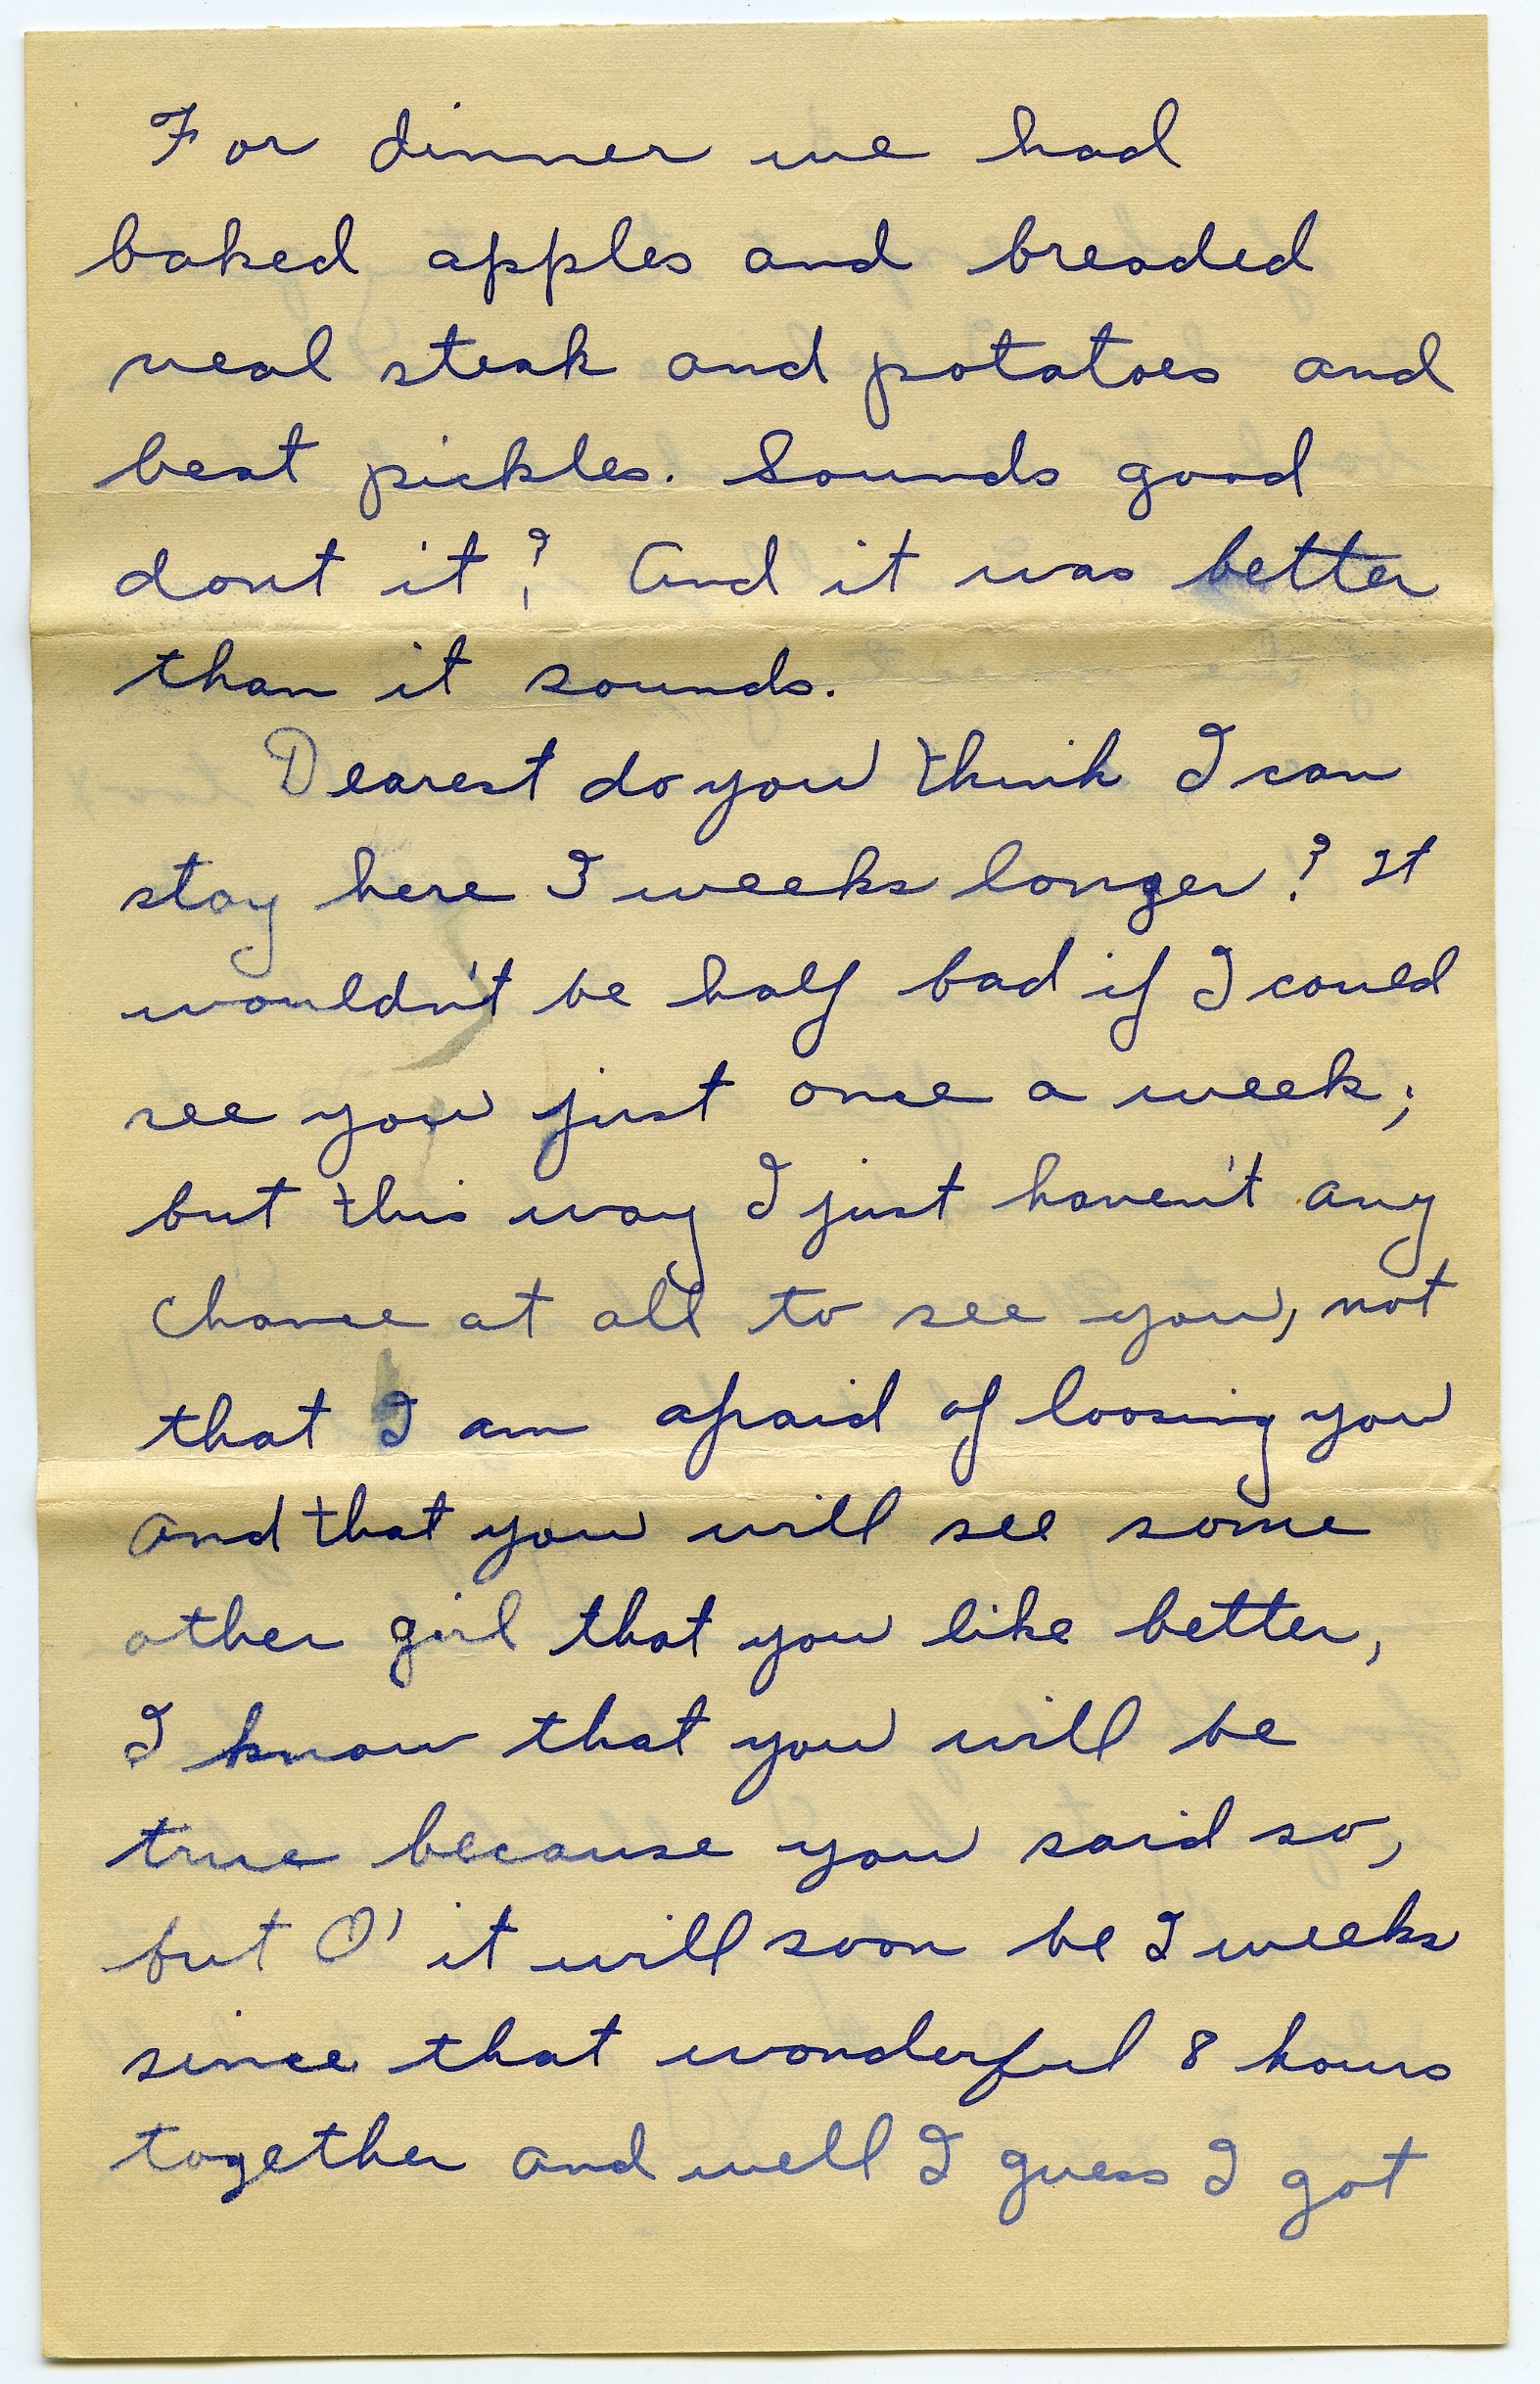 For dinner we had
baked apples and breaded
veal steak and potatoes and
beat pickles. Sounds good
dont it? And it was better
than it sounds.
Dearest do you think I can
stay here 3 weeks longer? It
wouldn't be half bad if I could
see you just once a week;
but this way I just haven't any
chance at all to see you, not
that I am afraid of loosing you
and that you will see some
other girl that you like better,
I know that you will be
true because you said so,
but O' it will soon be 2 weeks
since that wonderful 8 hours
together and well I guess I got